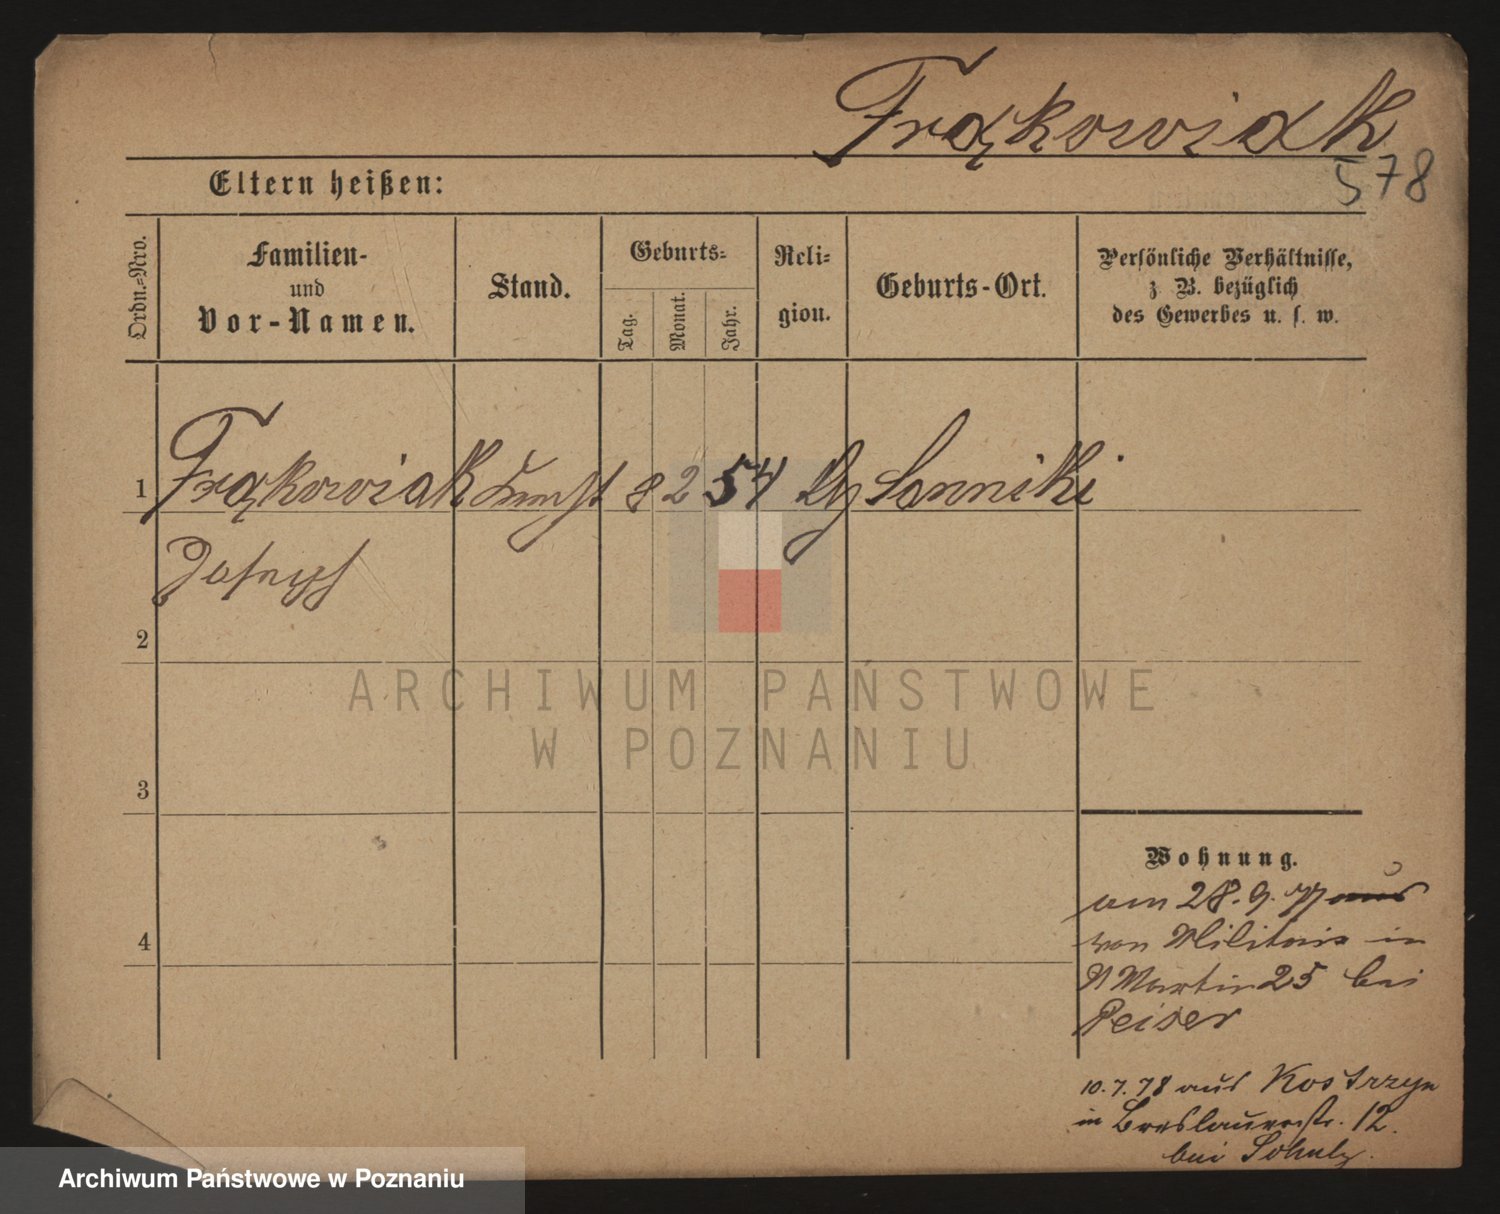 Frąkowiak
578
Eltern heißen:
Ordn.-Nro.
Familien-
und
Vor-Namen.
Stand.
Geburts-
Tag.
Monat.
Jahr.
Reli-
gion.
Geburts-Ort.
Persönliche Verhältnisse,
z. B. bezüglich
des Gewerbes u. s. w.
1 Frąkowiak Knecht 8 2 54 Sanniki
Joseph
2
3
4
ARCHIWUM PAŃSTWOWE
W POZNANIU
Wohnung.
am 28. 9. 77 aus
von Militair in
St Martin 25 bei
Peiser
10. 7. 78 aus Kostrzyn
in Breslauerstr. 12.
bei Schulz.
Archiwum Państwowe w Poznaniu